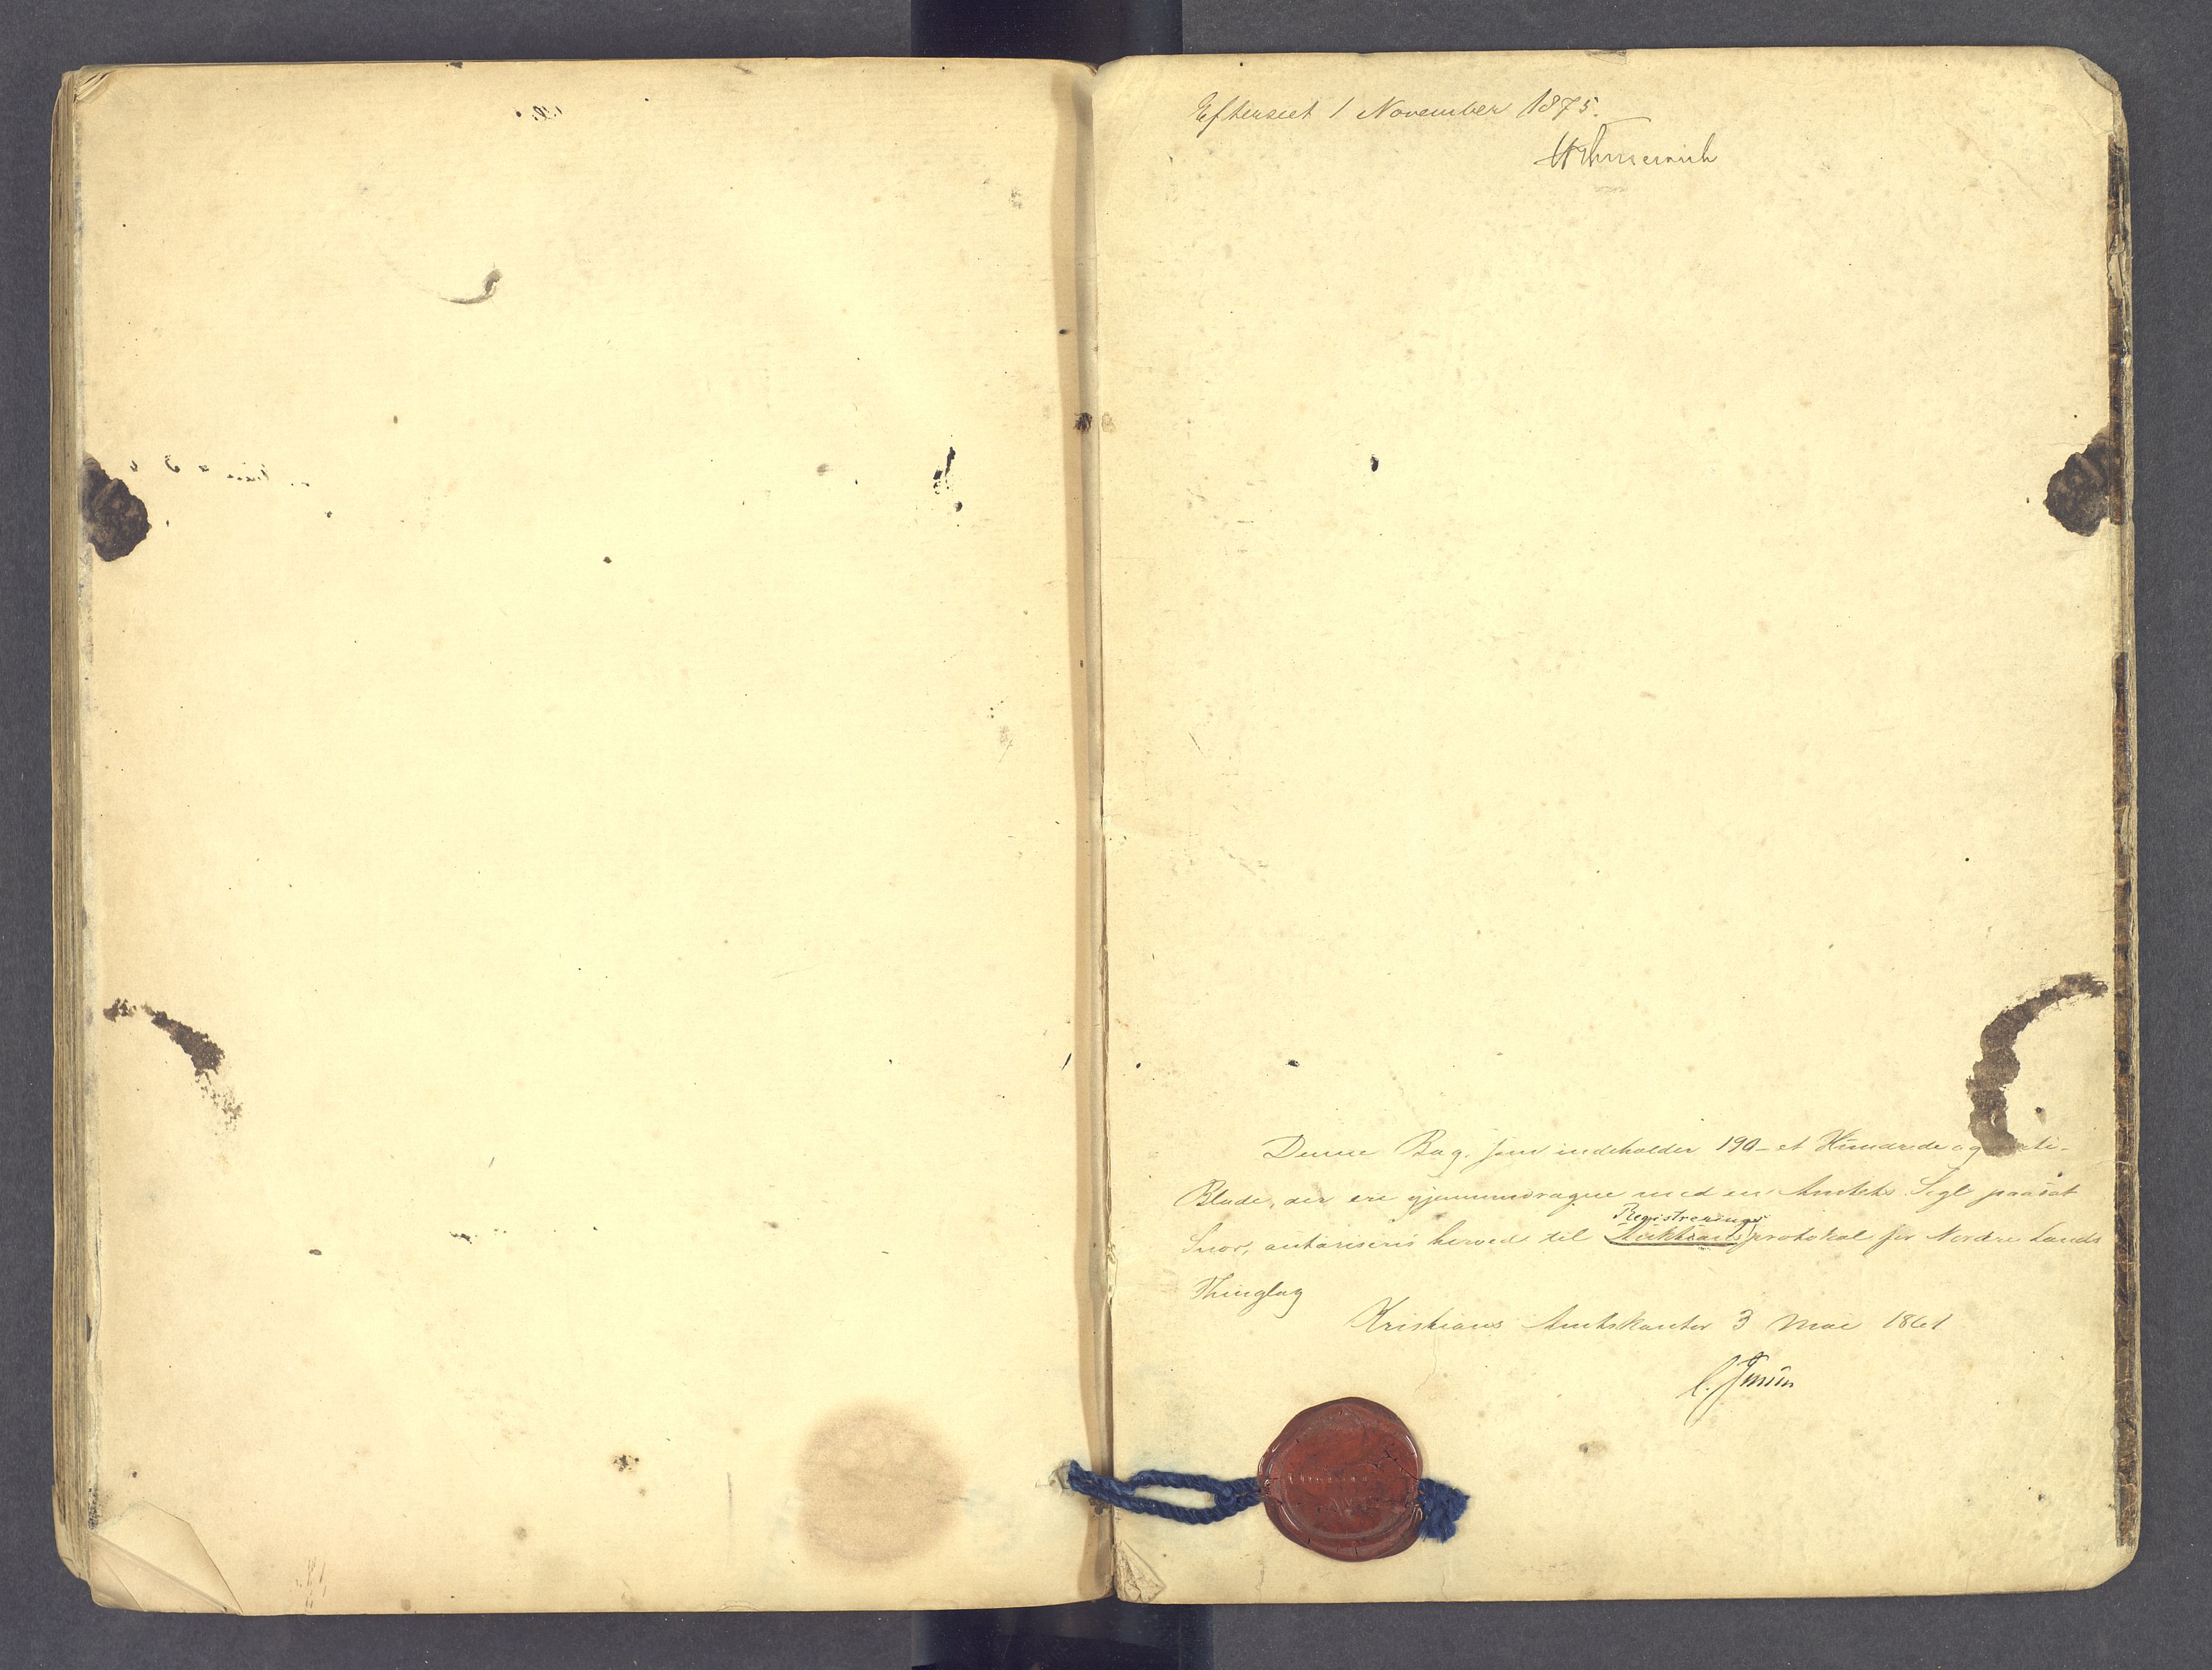 Efterseet 1 November 1875.
Denne Bog, som indeholder 190 - et Hundrede og
Blade, der ere gjennemdragne med en Amtets Segl paasat
Snor, autoriseris herved til Registrerings
Auktionsprotokol for Nordre Lands
Thinglag
Kristians Amtskontor 3 Mai 1861